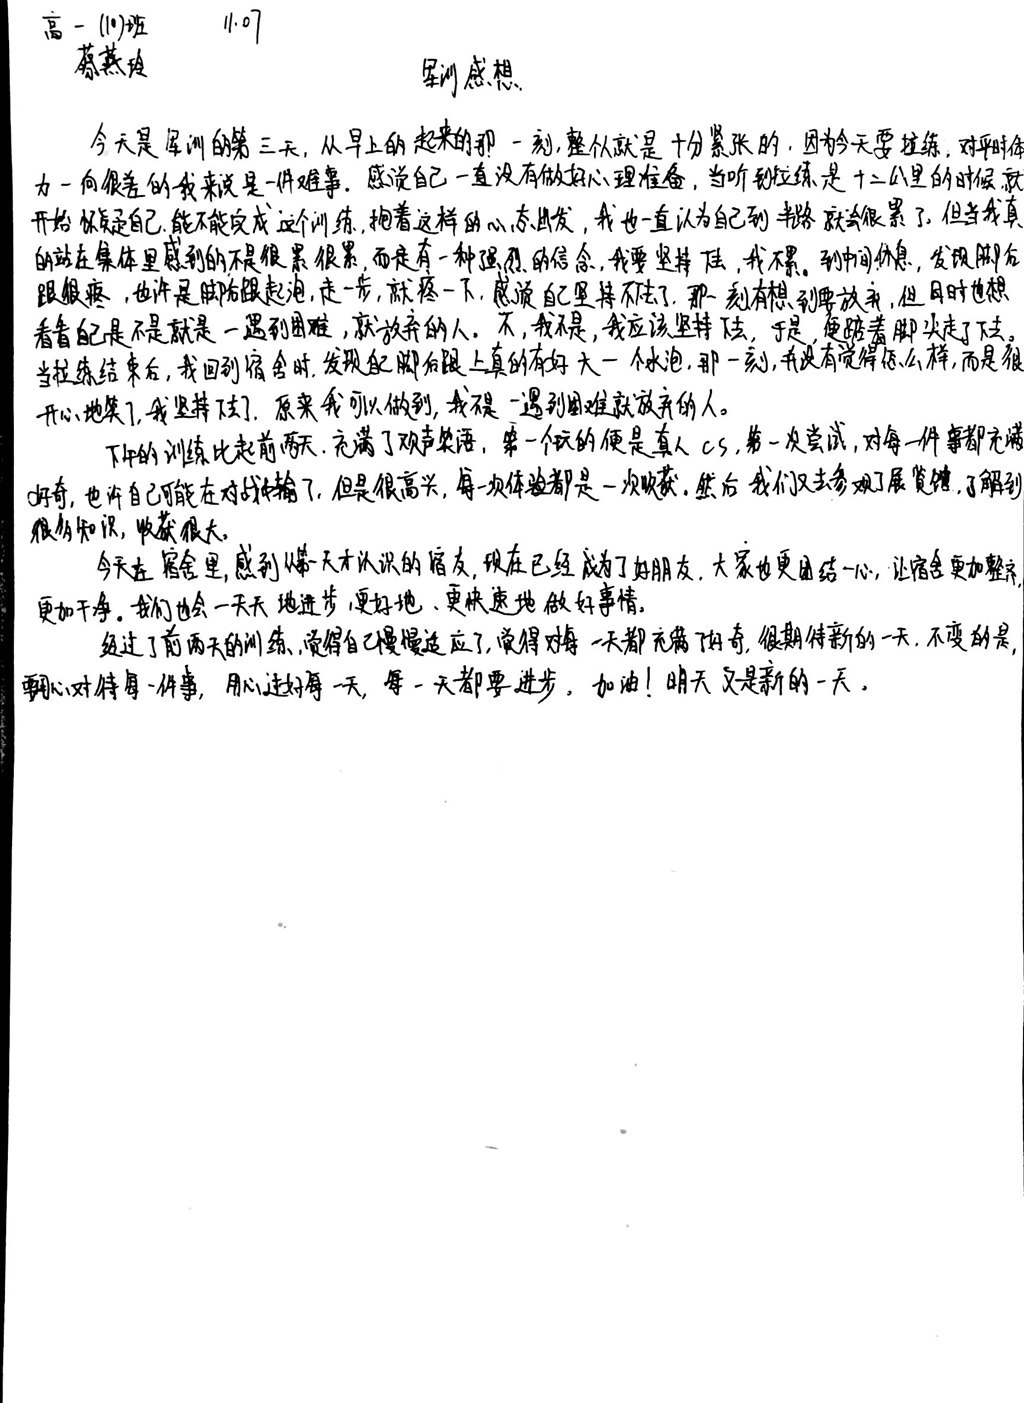 高一(10)班 11.07
蔡燕玲
军训感想
今天是军训的第三天，从早上的起来的那一刻，整个人就是十分紧张的，因为今天要拉练，对平时体
力一向很差的我来说是一件难事。感觉自己一直没有做好心理准备，当听到拉练是十二公里的时候就
开始怀疑自己，能不能完成这个训练，抱着这样的心态出发，我也一直认为自己到半路就会很累了。但当我真
的站在集体里感到的不是很累很累，而是有一种强烈的信念，我要坚持下去，我不累。到中间休息，发现脚后
跟很疼，也许是脚后跟起泡，走一步，就疼一下，感觉自己坚持不下去了，那一刻有想到要放弃，但同时也想
看看自己是不是就是一遇到困难，就放弃的人。不，我不是，我应该坚持下去，于是，便踮着脚尖走了下去。
当拉练结束后，我回到宿舍时，发现自己脚后跟上真的有好大一个水泡，那一刻，我没有觉得怎么样，而是很
开心地笑了，我坚持下去了，原来我可以做到，我不是一遇到困难就放弃的人。
下午的训练比起前两天，充满了欢声笑语，第一个玩的便是真人CS，第一次尝试，对每一件事都充满
好奇，也许自己可能在对战中输了，但是很高兴，每一次体验都是一次收获。然后我们又去参观了展览馆，了解到
很多知识，收获很大。
今天在宿舍里，感到从第一天才认识的宿友，现在已经成为了好朋友，大家也更团结一心，让宿舍更加整齐，
更加干净。我们也会一天天地进步，更好地、更快速地做好事情。
经过了前两天的训练，觉得自己慢慢适应了，觉得对每一天都充满了好奇，很期待新的一天，不变的是，
要用心对待每一件事，用心过好每一天，每一天都要进步。加油！明天又是新的一天。